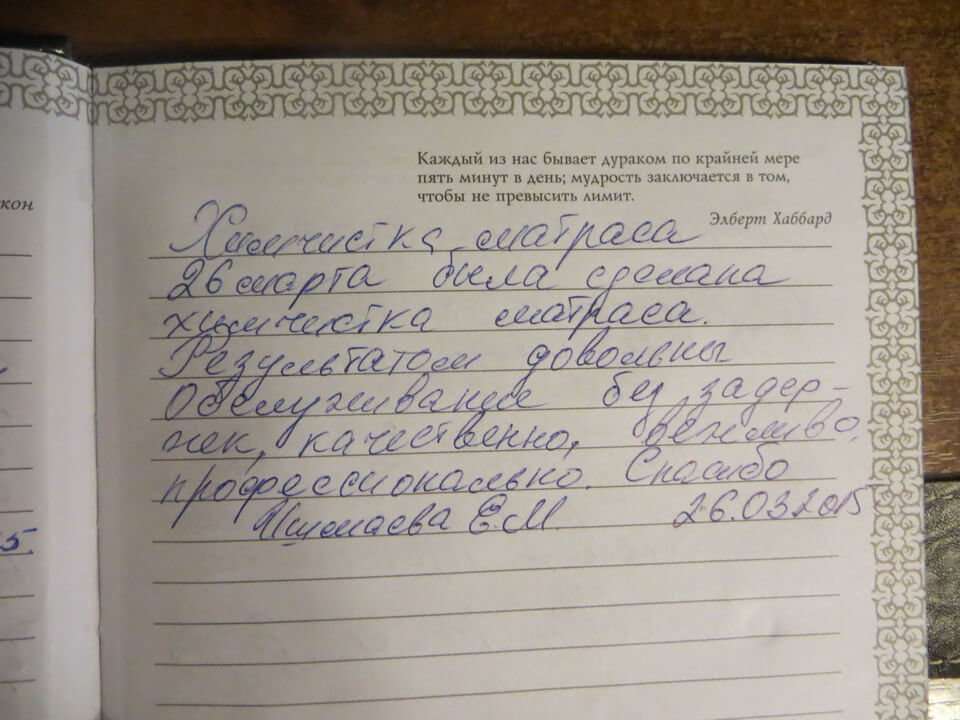 Каждый из нас бывает дураком по крайней мере
пять минут в день; мудрость заключается в том,
чтобы не превысить лимит.
Элберт Хаббард
кон
Химчистка матраса
26 марта была сделана
химчистка матраса.
Результатом довольны
Обслуживание без задер-
жек, качественно, вежливо,
профессионально. Спасибо
Е.М. 26.03.2015
5.